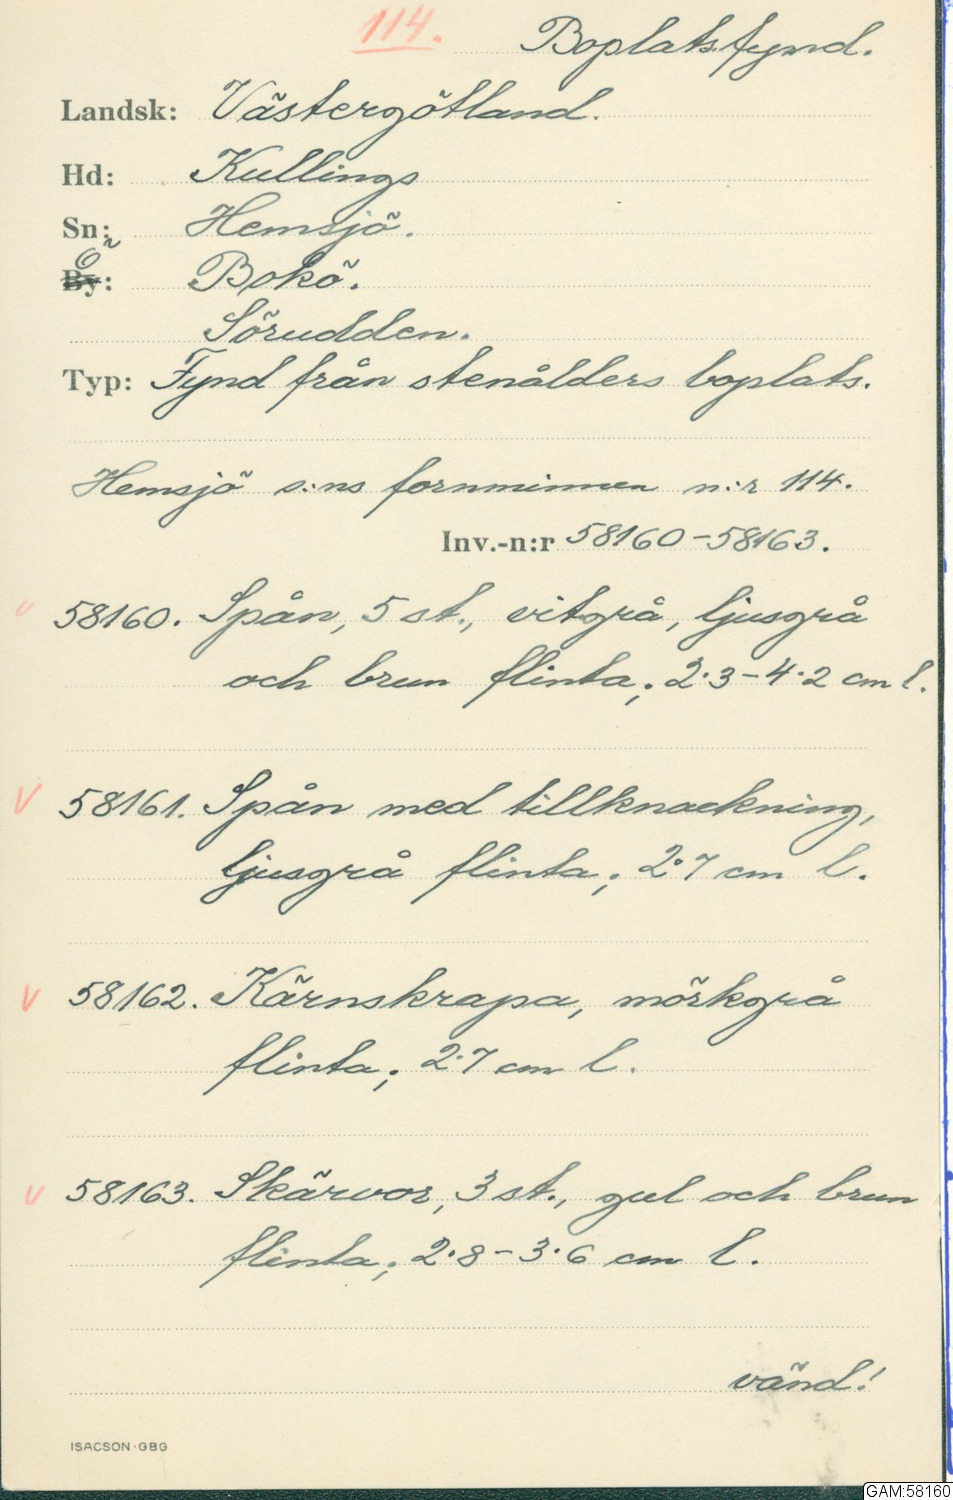 114.
Boplatsfynd.
Landsk: Västergötland.
Hd: Kullings
Sn: Hemsjö.
Ö By: Bokö.
Sörudden.
Typ: Fynd från stenålders boplats.
Hemsjö s:ns fornminnen n:r 114.
Inv.-n:r 58160-58163.
v 58160. Spån, 5 st., vitgrå, ljusgrå
och brun flinta; 2·3-4·2 cm l.
v 58161. Spån med tillknackning,
ljusgrå flinta; 2·7 cm l.
v 58162. Kärnskrapa, mörkgrå
flinta; 2·7 cm l.
v 58163. Skärvor, 3 st., gul och brun
flinta; 2·8-3·6 cm l.
vänd!
ISACSON·GBG
GAM:58160